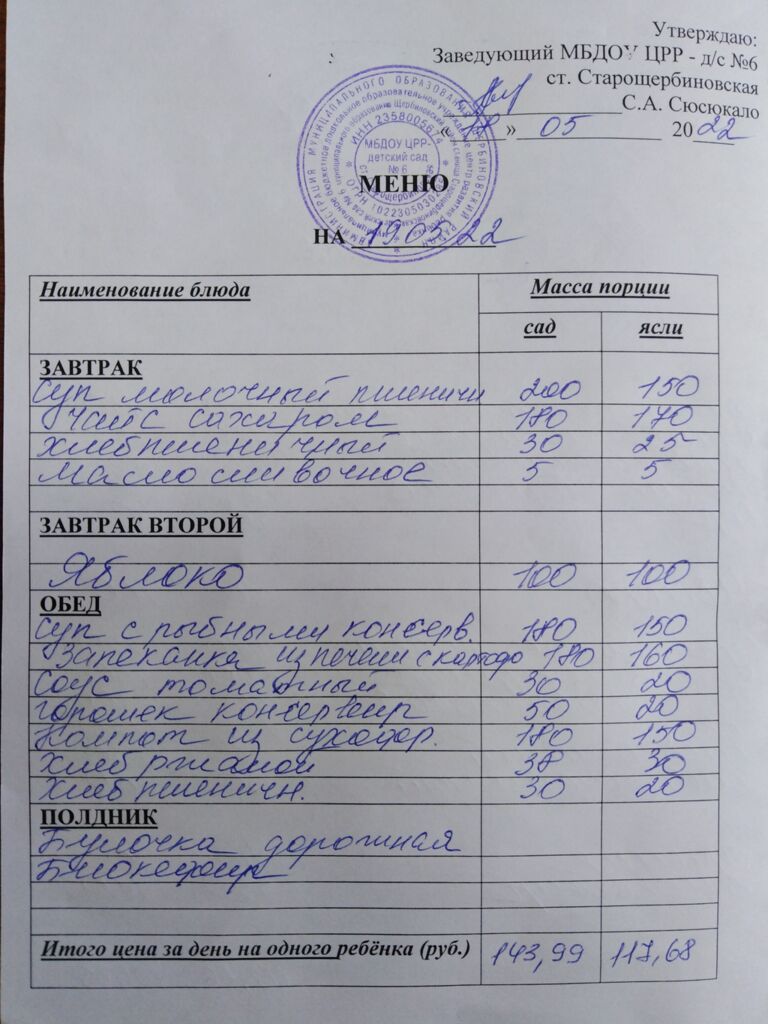 Утверждаю:
Заведующий МБДОУ ЦРР - д/с №6
ст. Старощербиновская
С.А. Сюсюкало
« » 05 2022
ИНН 2358005674
МБДОУ ЦРР-
детский сад
№ 6
МЕНЮ
НА 19.05.22
Наименование блюда Масса порции
сад ясли
ЗАВТРАК
Суп молочный пшеничн 200 150
Чай с сахаром 180 170
Хлеб пшеничный 30 25
Масло сливочное 5 5
ЗАВТРАК ВТОРОЙ
Яблоко 100 100
ОБЕД
Суп с рыбными консерв. 180 150
Запеканка из печени с картофо 180 160
Соус томатный 30 20
Горошек консервир 50 20
Компот из сухофр. 180 150
Хлеб ржаной 38 30
Хлеб пшеничн. 30 20
ПОЛДНИК
Булочка дорожная
Биокефир
Итого цена за день на одного ребёнка (руб.) 143,99 117,68